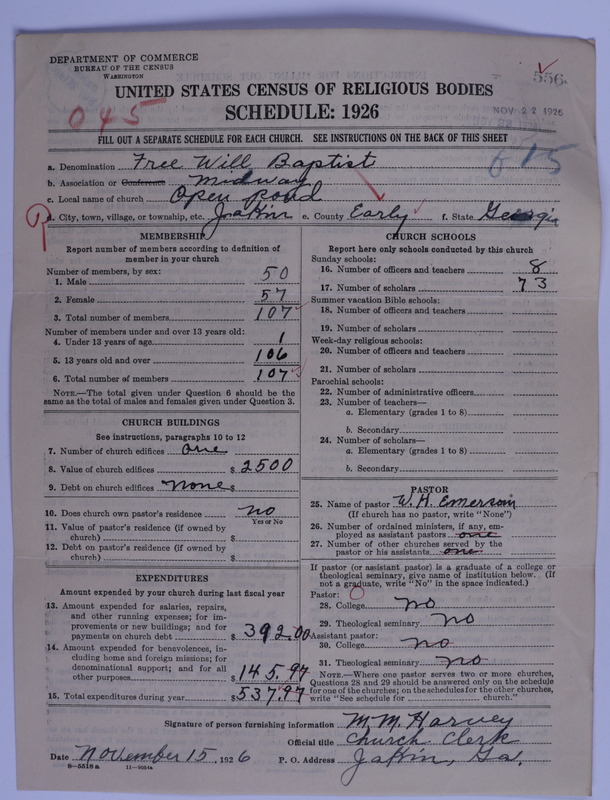 DEPARTMENT OF COMMERCE
BUREAU OF THE CENSUS
WASHINGTON
556
UNITED STATES CENSUS OF RELIGIOUS BODIES
SCHEDULE: 1926
NOV 22 1926
045
FILL OUT A SEPARATE SCHEDULE FOR EACH CHURCH. SEE INSTRUCTIONS ON THE BACK OF THIS SHEET
a. Denomination Free Will Baptist
b. Association or Conference Midway
c. Local name of church Open pond
d. City, town, village, or township, etc. Jakin e. County Early f. State Georgia
MEMBERSHIP
Report number of members according to definition of
member in your church
Number of members, by sex:
1. Male 50
2. Female 57
3. Total number of members 107
Number of members under and over 13 years old:
4. Under 13 years of age 1
5. 13 years old and over 106
6. Total number of members 107
NOTE.—The total given under Question 6 should be the
same as the total of males and females given under Question 3.
CHURCH BUILDINGS
See instructions, paragraphs 10 to 12
7. Number of church edifices one
8. Value of church edifices $ 2500
9. Debt on church edifices none $
10. Does church own pastor's residence? no
Yes or No
11. Value of pastor's residence (if owned by
church) $
12. Debt on pastor's residence (if owned by
church) $
EXPENDITURES
Amount expended by your church during last fiscal year
13. Amount expended for salaries, repairs,
and other running expenses; for im-
provements or new buildings; and for
payments on church debt $ 392.00
14. Amount expended for benevolences, in-
cluding home and foreign missions; for
denominational support; and for all
other purposes $ 145.97
15. Total expenditures during year $ 537.97
CHURCH SCHOOLS
Report here only schools conducted by this church
Sunday schools:
16. Number of officers and teachers 8
17. Number of scholars 73
Summer vacation Bible schools:
18. Number of officers and teachers
19. Number of scholars
Week-day religious schools:
20. Number of officers and teachers
21. Number of scholars
Parochial schools:
22. Number of administrative officers
23. Number of teachers—
a. Elementary (grades 1 to 8)
b. Secondary
24. Number of scholars—
a. Elementary (grades 1 to 8)
b. Secondary
PASTOR
25. Name of pastor W. H. Emerson
(If church has no pastor, write "None")
26. Number of ordained ministers, if any, em-
ployed as assistant pastors one
27. Number of other churches served by the
pastor or his assistants one
If pastor (or assistant pastor) is a graduate of a college or
theological seminary, give name of institution below. (If
not a graduate, write "No" in the space indicated.)
Pastor:
28. College no
29. Theological seminary no
Assistant pastor:
30. College no
31. Theological seminary no
NOTE.—Where one pastor serves two or more churches,
Questions 28 and 29 should be answered only on the schedule
for one of the churches; on the schedules for the other churches,
write "See schedule for church."
Signature of person furnishing information M. M. Harvey
Official title Church Clerk
Date November 15, 1926 P. O. Address Jakin, Ga.
8-5518a 11-9034a